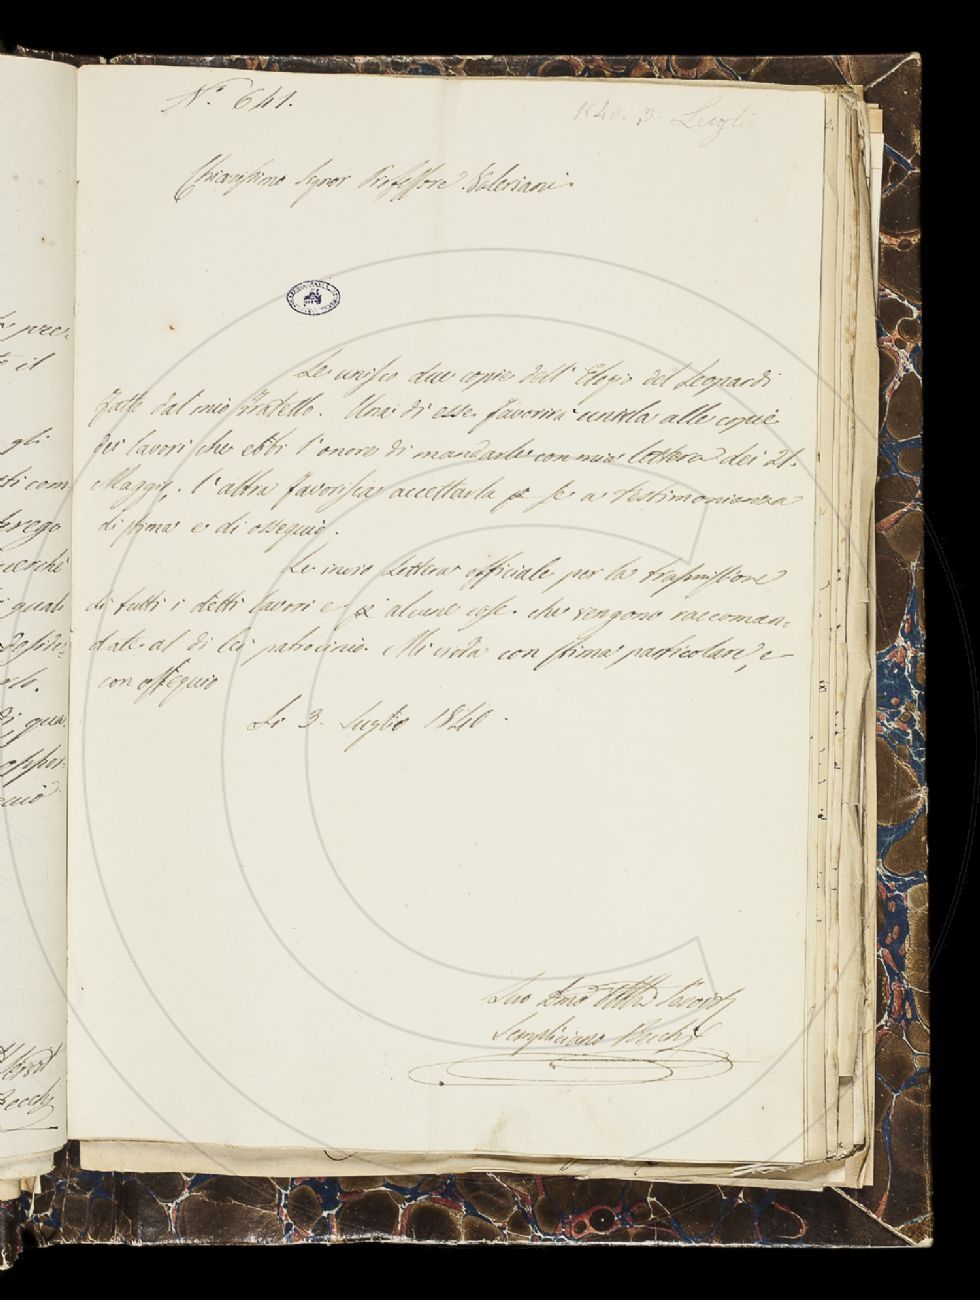 N.º 641.
1840. 3. Luglio
Chiarissimo Signor Professore Valeriani
Le unisco due copie dell' Elogio del Leopardi
fatto dal mio fratello. Una di esse favorirà unirla alle copie
dei lavori che ebbi l'onore di mandarle con mia lettera dei 21.
Maggio, l'altra favorisca accettarla p se a testimonianza
di stima e di ossequio.
Le invio lettera officiale per la trasmissione
di tutti i detti lavori e p alcune cose che vengono raccoman=
date al di Lei patrocinio. Mi creda con stima particolare, e
con ossequio
Li 3. Luglio 1840.
Suo Dmo
Sempliciano Becchi
gli
il
perchè
quali